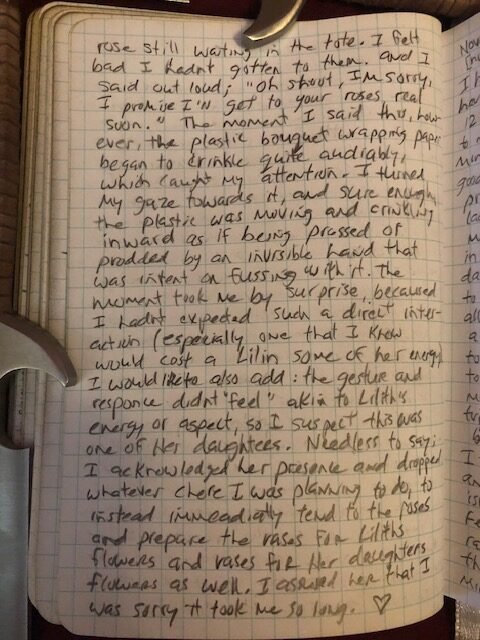 rose still waiting in the tote. I felt
bad I hadnt gotten to them. and I
said out loud; "Oh shoot, I'm sorry,
I promise I'll get to your roses real
soon." The moment I said this, how-
ever, the plastic bouquet wrapping paper
began to crinkle quite audiably,
which caught my attention. I turned
my gaze towards it, and sure enough
the plastic was moving and crinkling
inward as if being prassed or
prodded by an invisible hand that
was intent on fussing with it. The
moment took me by surprise, becaused
I hadnt expected such a direct inter-
action (especially one that I know
would cost a Lilin some of her energy)
I would like to also add: the gesture and
responce didnt "feel" akin to Lilith's
energy or aspect, so I suspect this was
one of Her daughters. Needless to say:
I acknowledged her presence and dropped
whatever chore I was planning to do, to
instead immeadiatly tend to the roses
and prepare the vases for Liliths
flowers and vases for Her daughters
flowers as well. I assured her that I
was sorry it took me so long. ♡